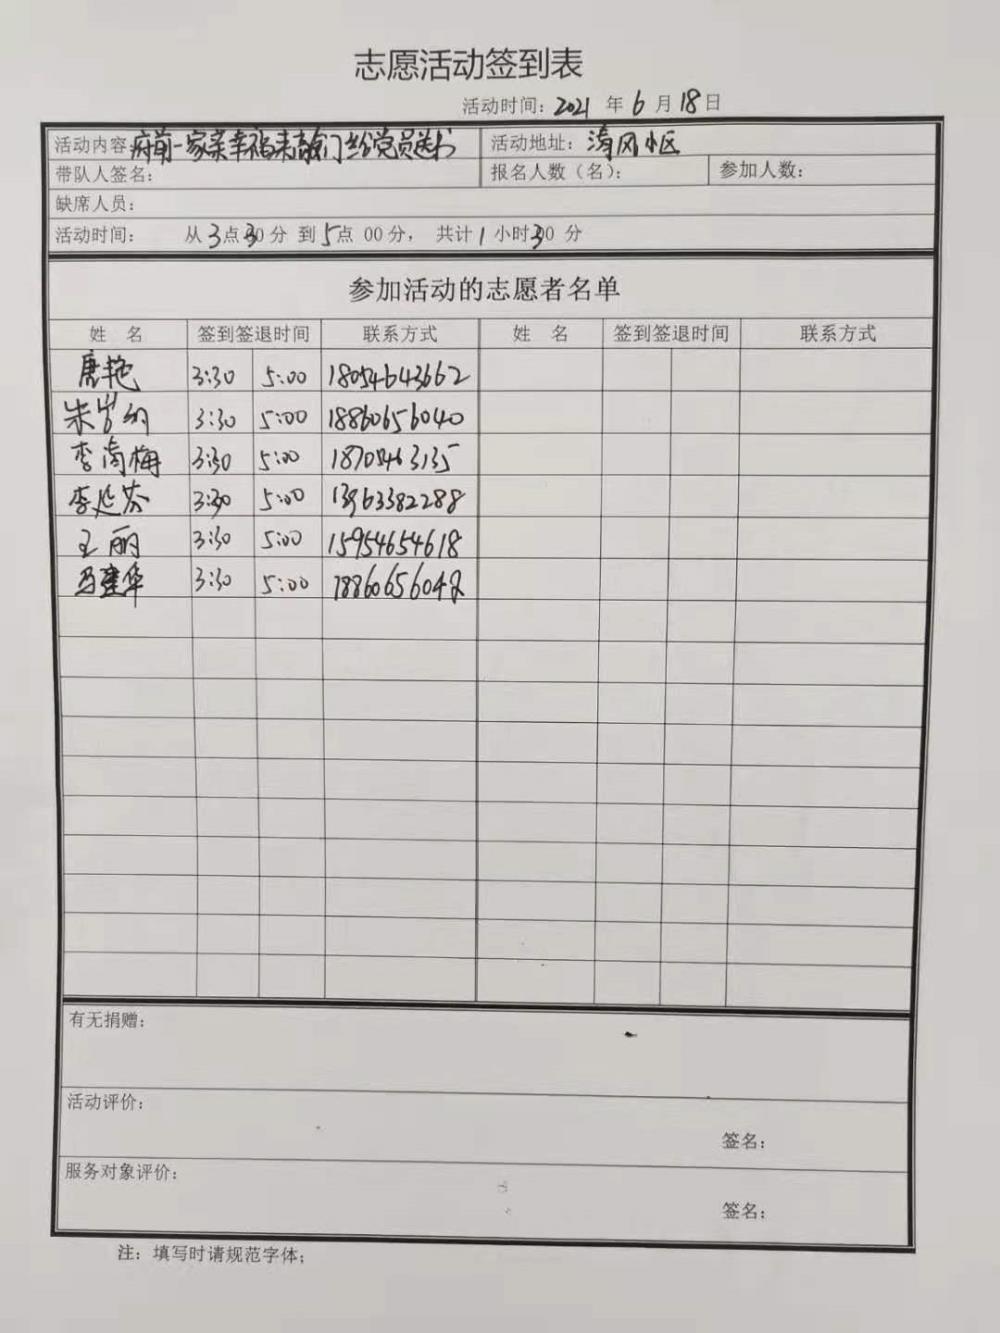 志愿活动签到表
活动时间：2021 年 6 月 18 日
活动内容：府前一家亲幸福来敲门给党员送书 活动地址：清风小区
带队人签名： 报名人数（名）： 参加人数：
缺席人员：
活动时间： 从 3 点 30 分 到 5 点 00 分， 共计 1 小时 30 分
参加活动的志愿者名单
姓 名 签到签退时间 联系方式 姓 名 签到签退时间 联系方式
唐艳 3:30 5:00 18054643662
朱 3:30 5:00 18860656040
李尚梅 3:30 5:00
李延芬 3:30 5:00 13963382288
王丽 3:30 5:00 15954654618
冯建华 3:30 5:00
有无捐赠：
活动评价：
签名：
服务对象评价：
签名：
注：填写时请规范字体；